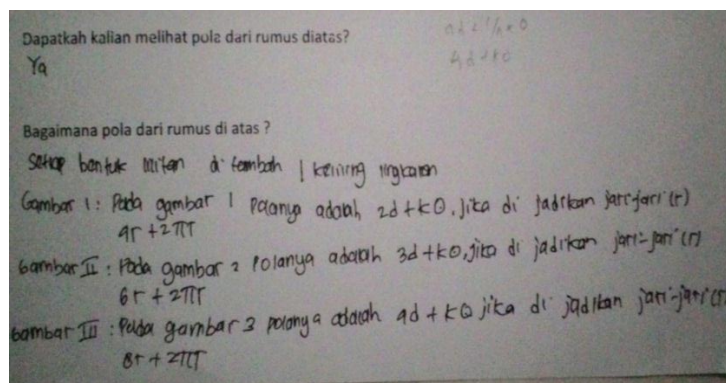 Dapatkah kalian melihat pola dari rumus diatas?
Ya
Bagaimana pola dari rumus di atas ?
Setiap bentuk lilitan di tambah 1 keliling lingkaran
Gambar 1 : Pada gambar 1 polanya adalah 2d + kO, Jika di jadikan jari-jari (r)
4r + 2πr
Gambar II : Pada gambar 2 polanya adalah 3d + kO, jika di jadikan jari-jari (r)
6r + 2πr
Gambar III : Pada gambar 3 polanya adalah 4d + kO jika di jadikan jari-jari (r
8r + 2πr